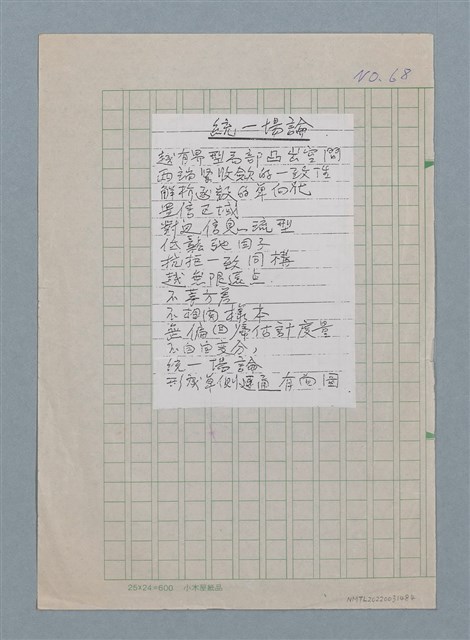 NO. 68
統一場論
越有界型局部凸出空間
兩端緊收斂的一致性
解析函數的單向代
置信区域
對逆信息流型
低鬆弛因子
抗拒一致同構
越無限遠点
不等方差
不相関樣本
無偏回歸估計度量
不自由变分,
統一場論
形成單側連通有向圖
25×24=600 小木屋紙品
NMTL20220031484